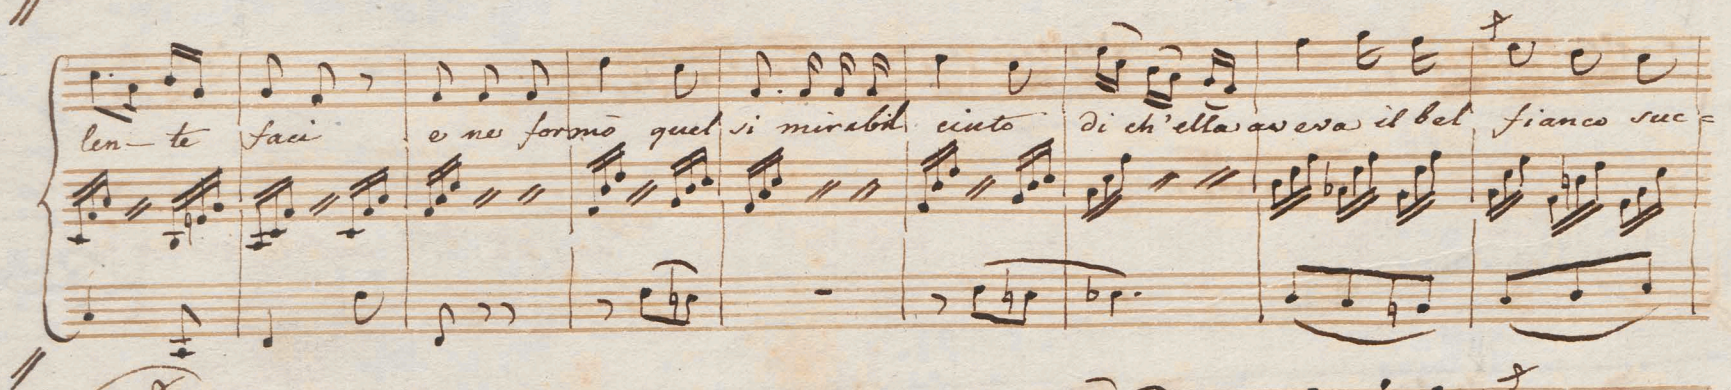 len- te faci e ne formò quel si mirabil cinto di ch'ella aveva il bel fianco suc=